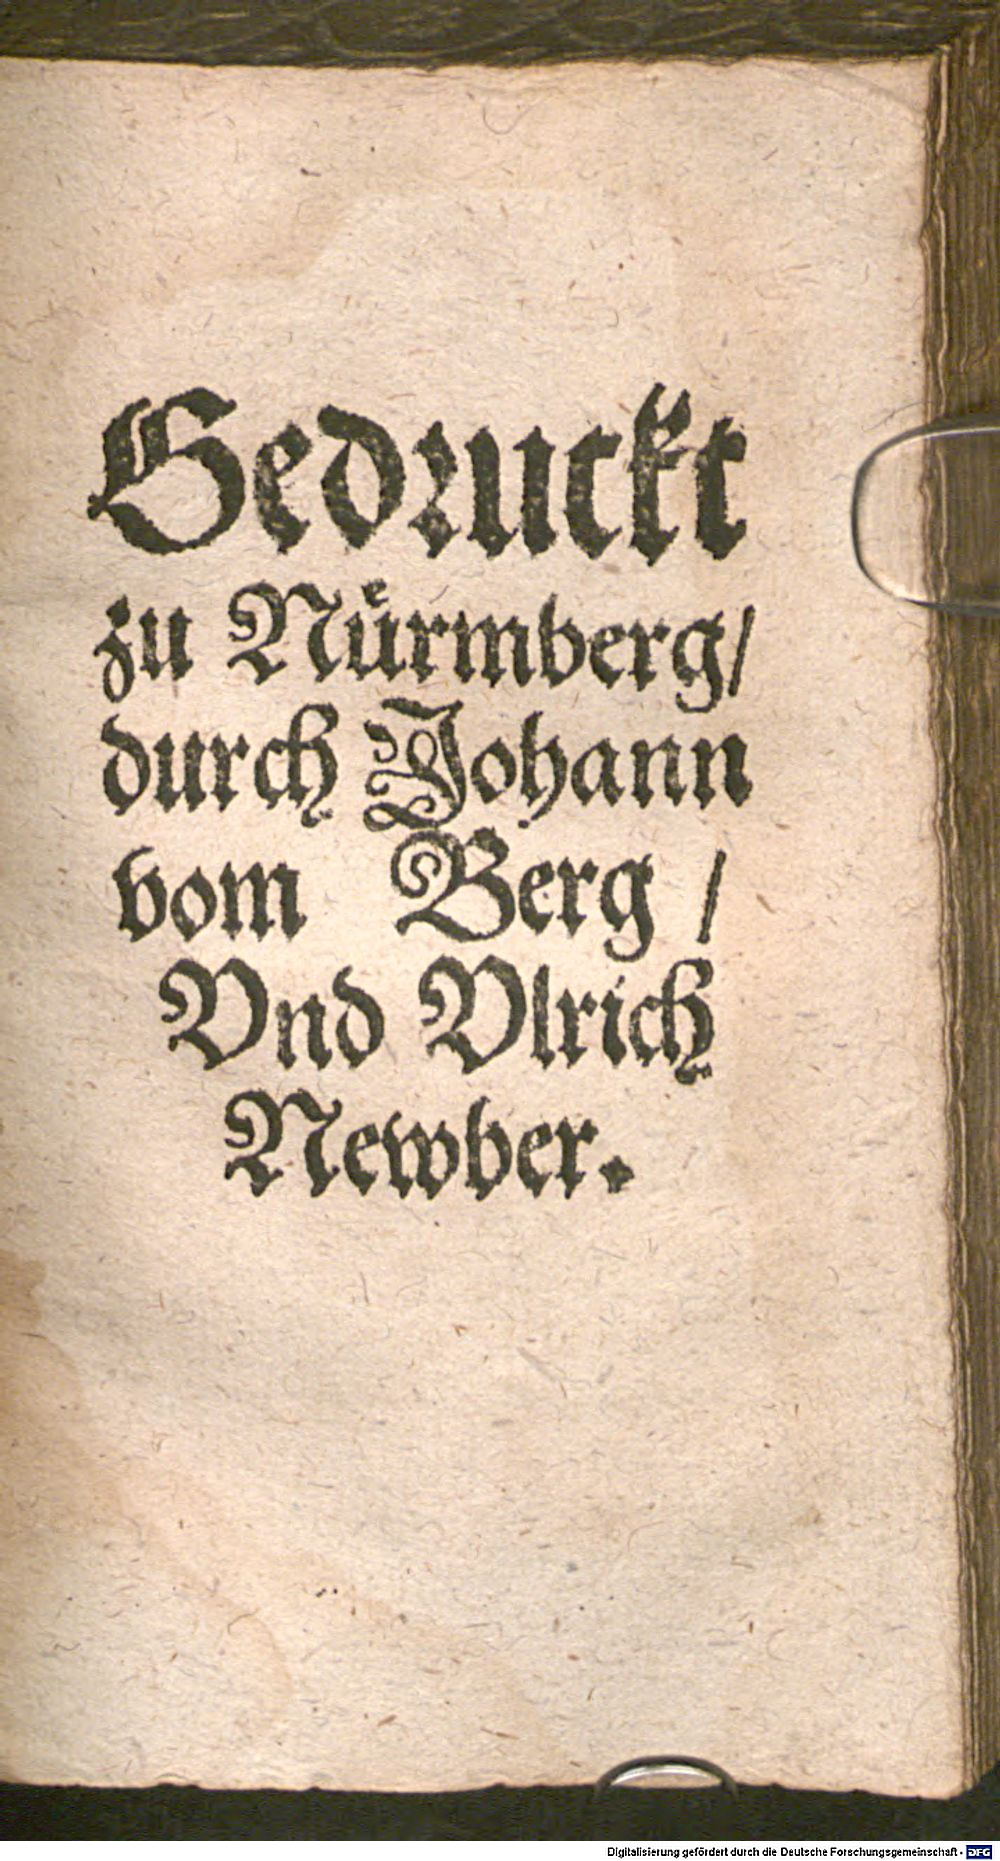 Gedruckt
zu Nürmberg/
durch Johann
vom Berg /
Vnd Vlrich
Newber.
Digitalisierung gefördert durch die Deutsche Forschungsgemeinschaft - DFG